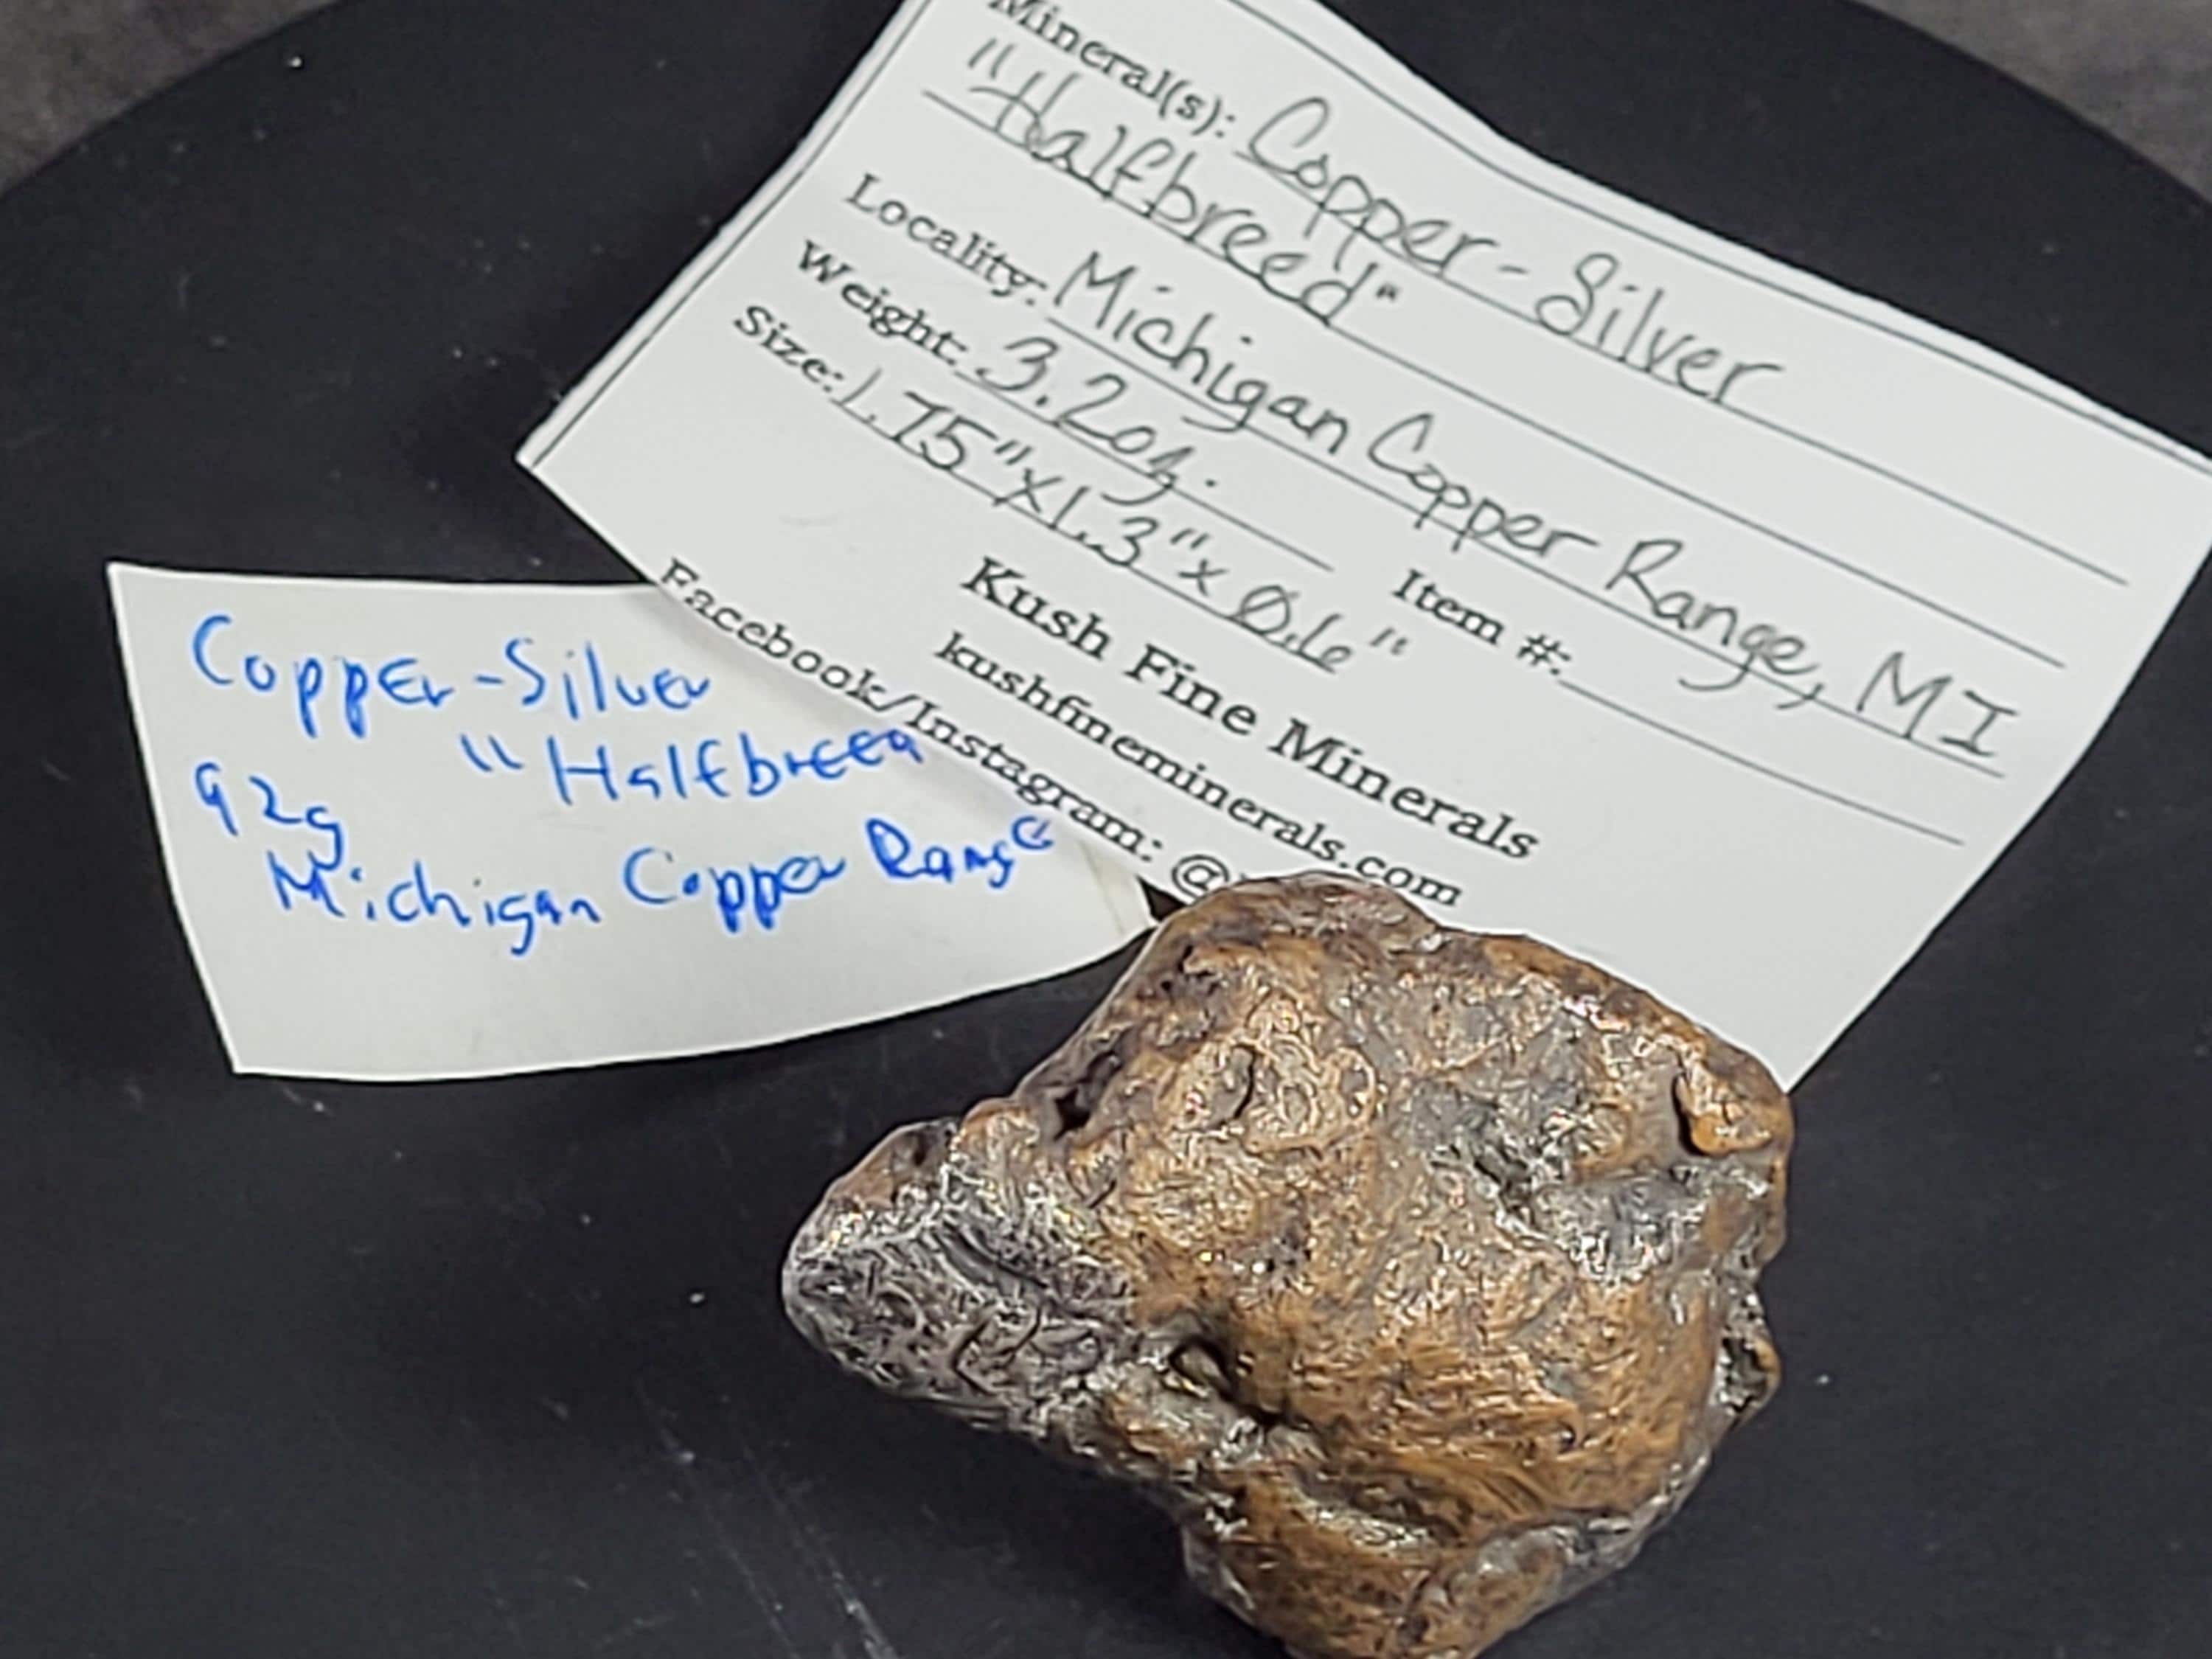 Mineral(s): Copper-Silver
"Halfbreed"
Locality: Michigan Copper Range, MI
Weight: 3.2oz.
Size: 1.75"x1.3"x0.6"
Item #:
Kush Fine Minerals
kushfineminerals.com
Facebook/Instagram: @
Copper-Silver
"Halfbreed
92g
Michigan Copper Range